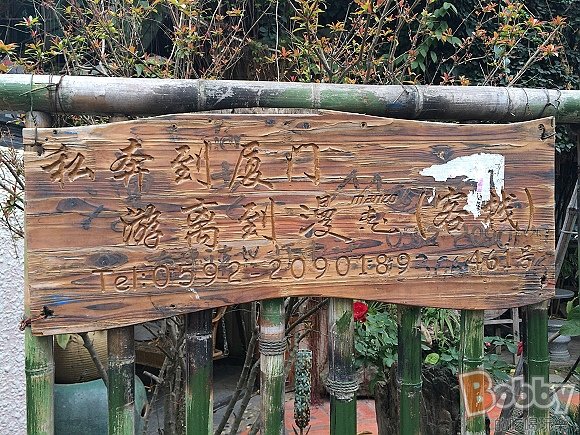 私奔到厦门
游离到漫屯(客栈)
Tel:0592-2090189 461号
Bobby